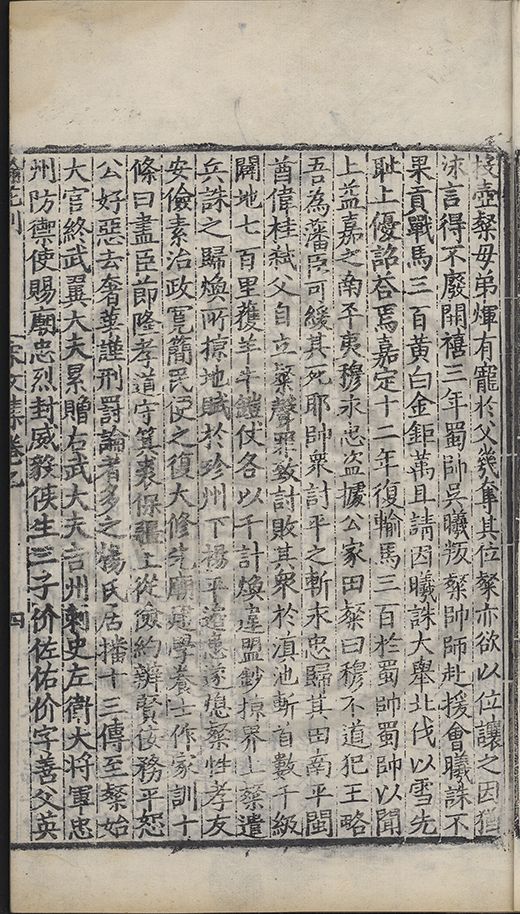 壺粲母弟煇有寵於父幾奪其位粲亦欲以位讓之因猶
沬言得不廢開禧三年蜀帥吳曦叛粲帥師赴援會曦誅不
果貢戰馬三百黃白金鉅萬且請因曦誅大舉北伐以雪先
耻上優詔荅焉嘉定十二年復輸馬三百於蜀帥蜀帥以聞
上益嘉之南平夷穆永忠盜據公家田粲曰穆不道犯王略
吾為藩臣可緩其死耶帥衆討平之斬永忠歸其田南平閩
酋偉桂弑父自立粲聲罪致討敗其衆於滇池斬首數千級
闢地七百里獲羊牛鎧仗各以千計煥違盟鈔掠界上粲遣
兵誅之歸煥所掠地賦於珍州下楊平遠患遂熄粲性孝友
安儉素治政寬簡民便之復大修先廟建學養士作家訓十
條曰盡臣節隆孝道守箕裘保疆土從儉約辨賢佞務平恕
公好惡去奢華謹刑罰論者多之楊氏居播十三傳至粲始
大官終武翼大夫累贈右武大夫吉州刺史左衛大将軍忠
州防禦使賜廟忠烈封威毅侯生三子价佐佑价字善父英